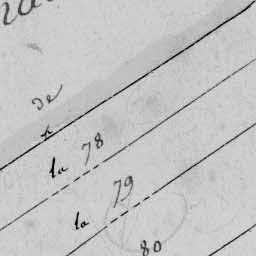 de
la 78
la 79
80